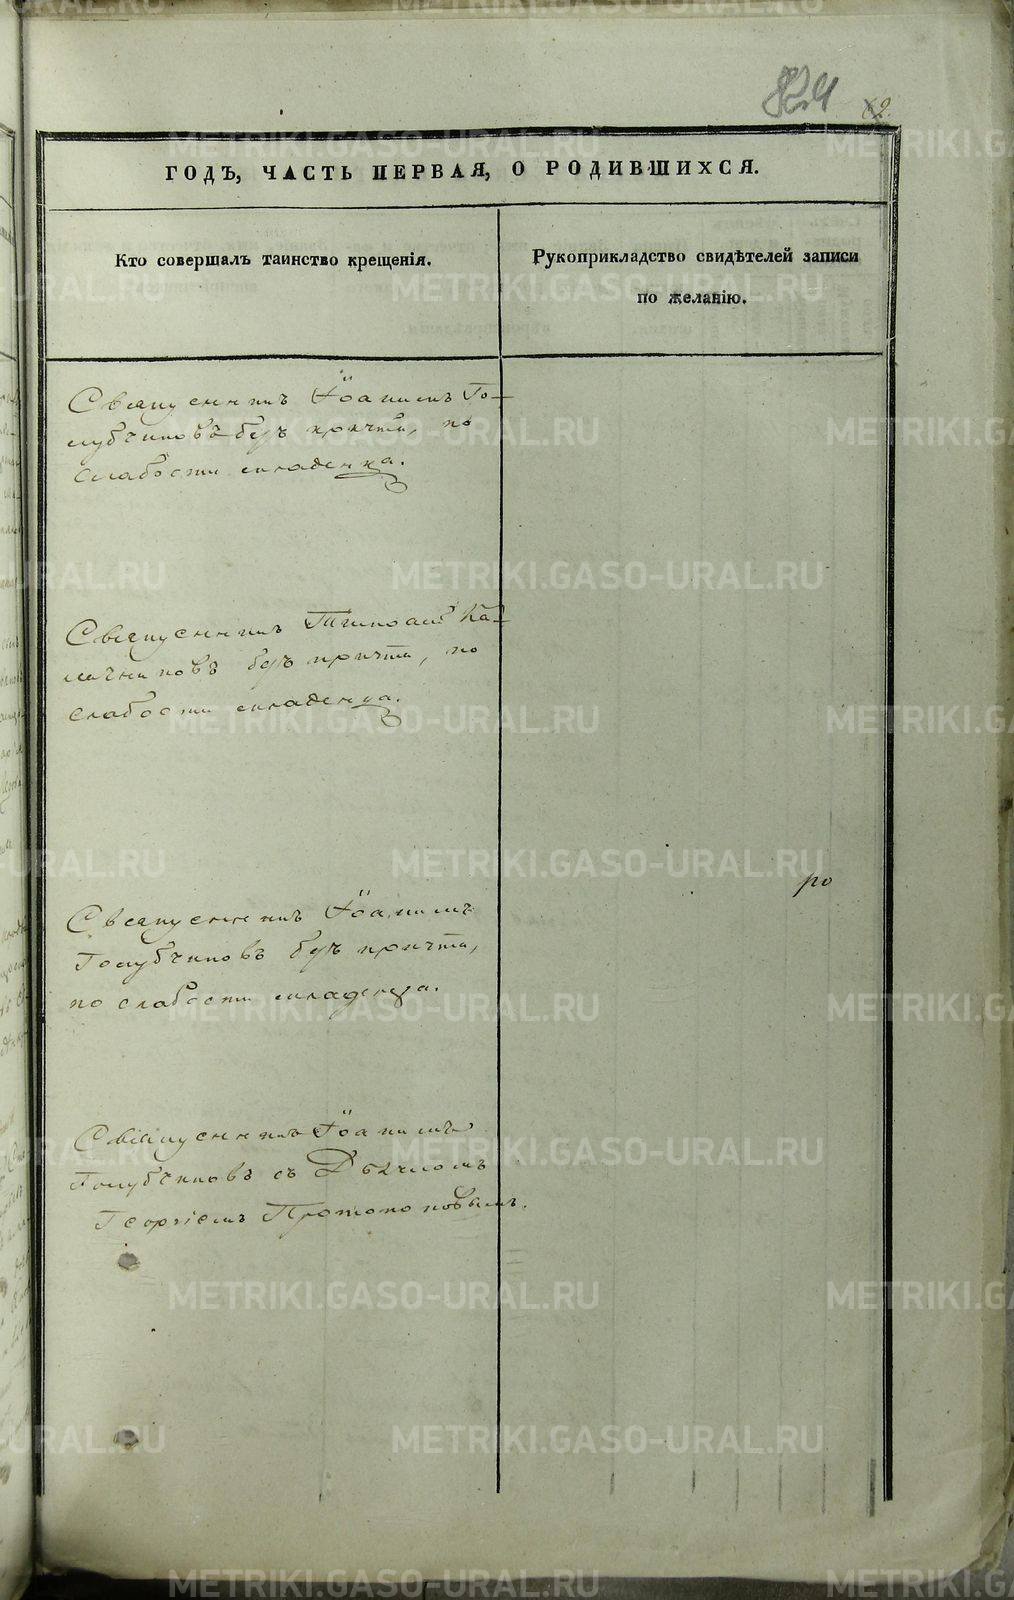 824 62.
ГОДЪ, ЧАСТЬ ПЕРВАЯ, О РОДИВШИХСЯ.
Кто совершалъ таинство крещенія.
Рукоприкладство свидѣтелей записи
по желанію.
Священникъ Іоаннъ Го-
лубчиковъ безъ причта, по
слабости младенца.
Священникъ Тимоѳей Ка-
лачниковъ безъ причта, по
слабости младенца.
ро
Священникъ Іоаннъ
Голубчиковъ безъ причта,
по слабости младенца.
Священникъ Іоаннъ
Голубчиковъ съ Дьячкомъ
Георгіемъ Протопоповымъ.
METRIKI.GASO-URAL.RU